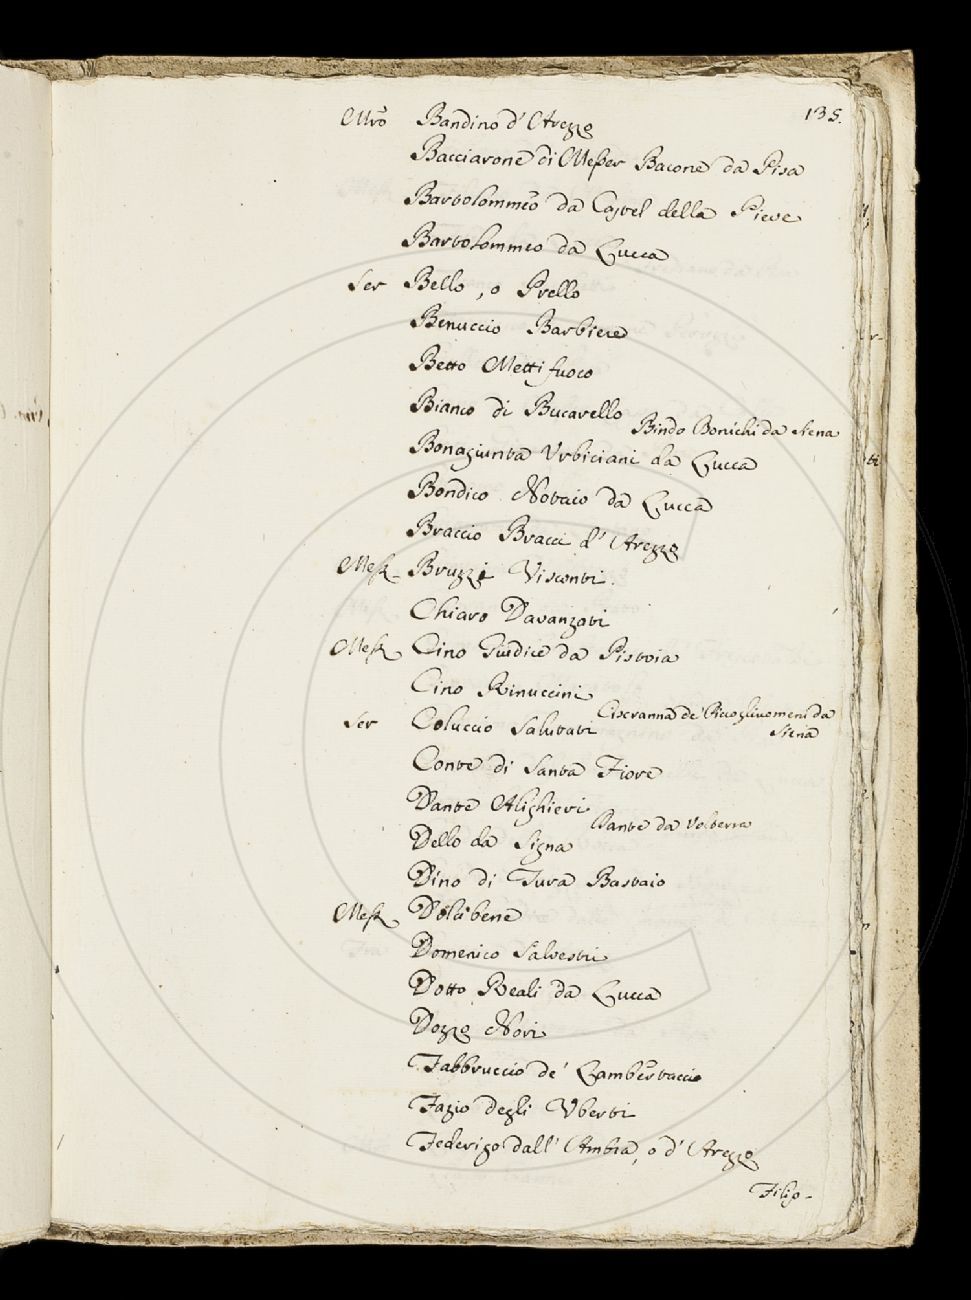 135.
Mro Bandino d'Arezzo
Bacciarone di Messer Bacone da Pisa
Bartolommeo da Castel della Pieve
Bartolommeo da Lucca
Ser Bello, o Prello
Benuccio Barbiere
Betto Mettifuoco
Bianco di Bucarello
Bindo Bonichi da Siena
Bonagiunta Urbiciani da Lucca
Bondico Notaio da Lucca
Braccio Bracci d'Arezzo
Mess. Bruzzi Visconti.
Chiaro Davanzati
Mess. Cino Giudice da Pistoia
Cino Rinuccini
Ciscranna de' Piccoglivomeni da
Siena
Ser Coluccio Salutati
Conte di Santa Fiore
Dante Alighieri
Dante da Volterra
Dello da Signa
Dino di Tura Bastaio
Mess. Dolcibene
Domenico Salvestri
Dotto Reali da Lucca
Dozzo Nori
Fabbruccio de' Lambertaccio
Fazio degli Uberti
Federigo dall'Ambra, o d'Arezzo
Filip-